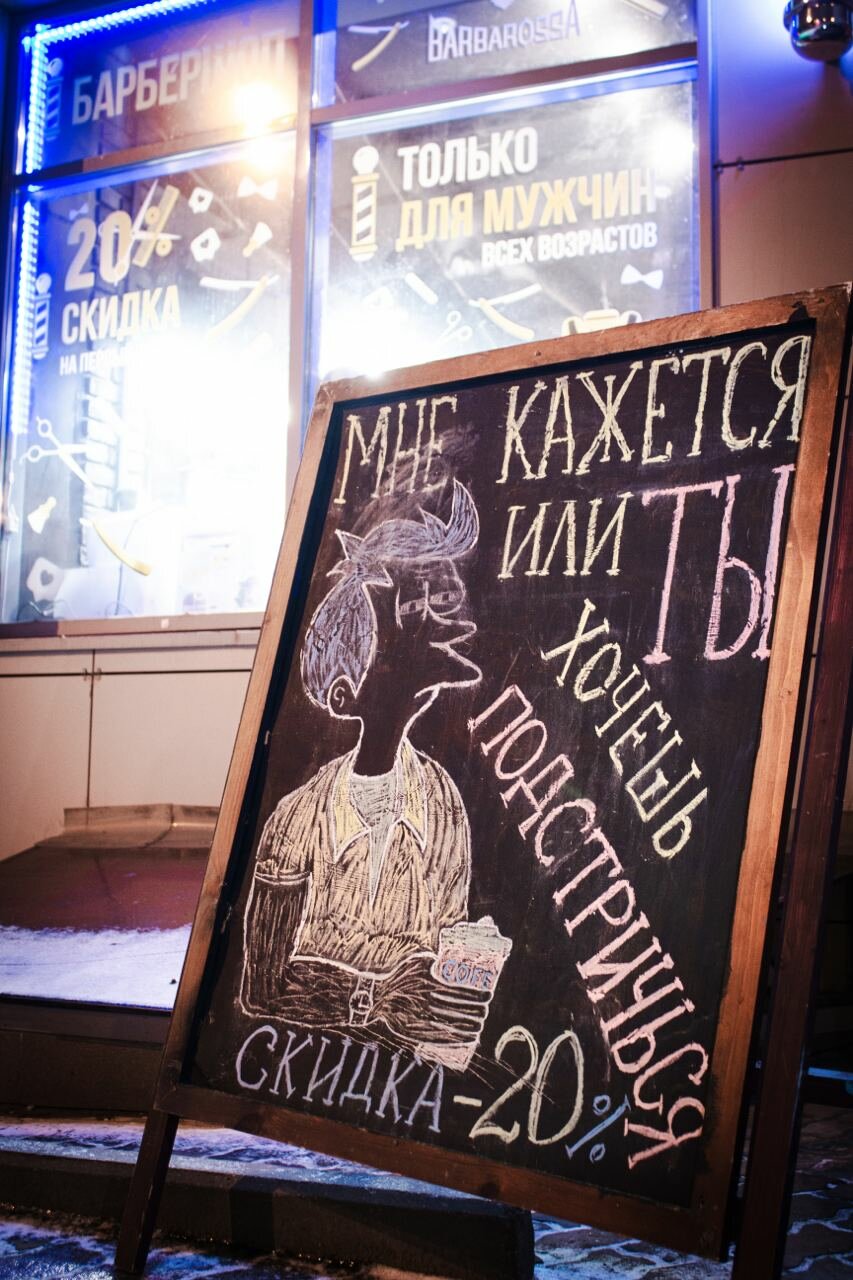 БАРБЕРШОП
BARBAROSSA
ТОЛЬКО
ДЛЯ МУЖЧИН
ВСЕХ ВОЗРАСТОВ
20%
СКИДКА
МНЕ КАЖЕТСЯ
ИЛИ ТЫ
ХОЧЕШЬ
ПОДСТРИЧЬСЯ
COFE
СКИДКА -20%